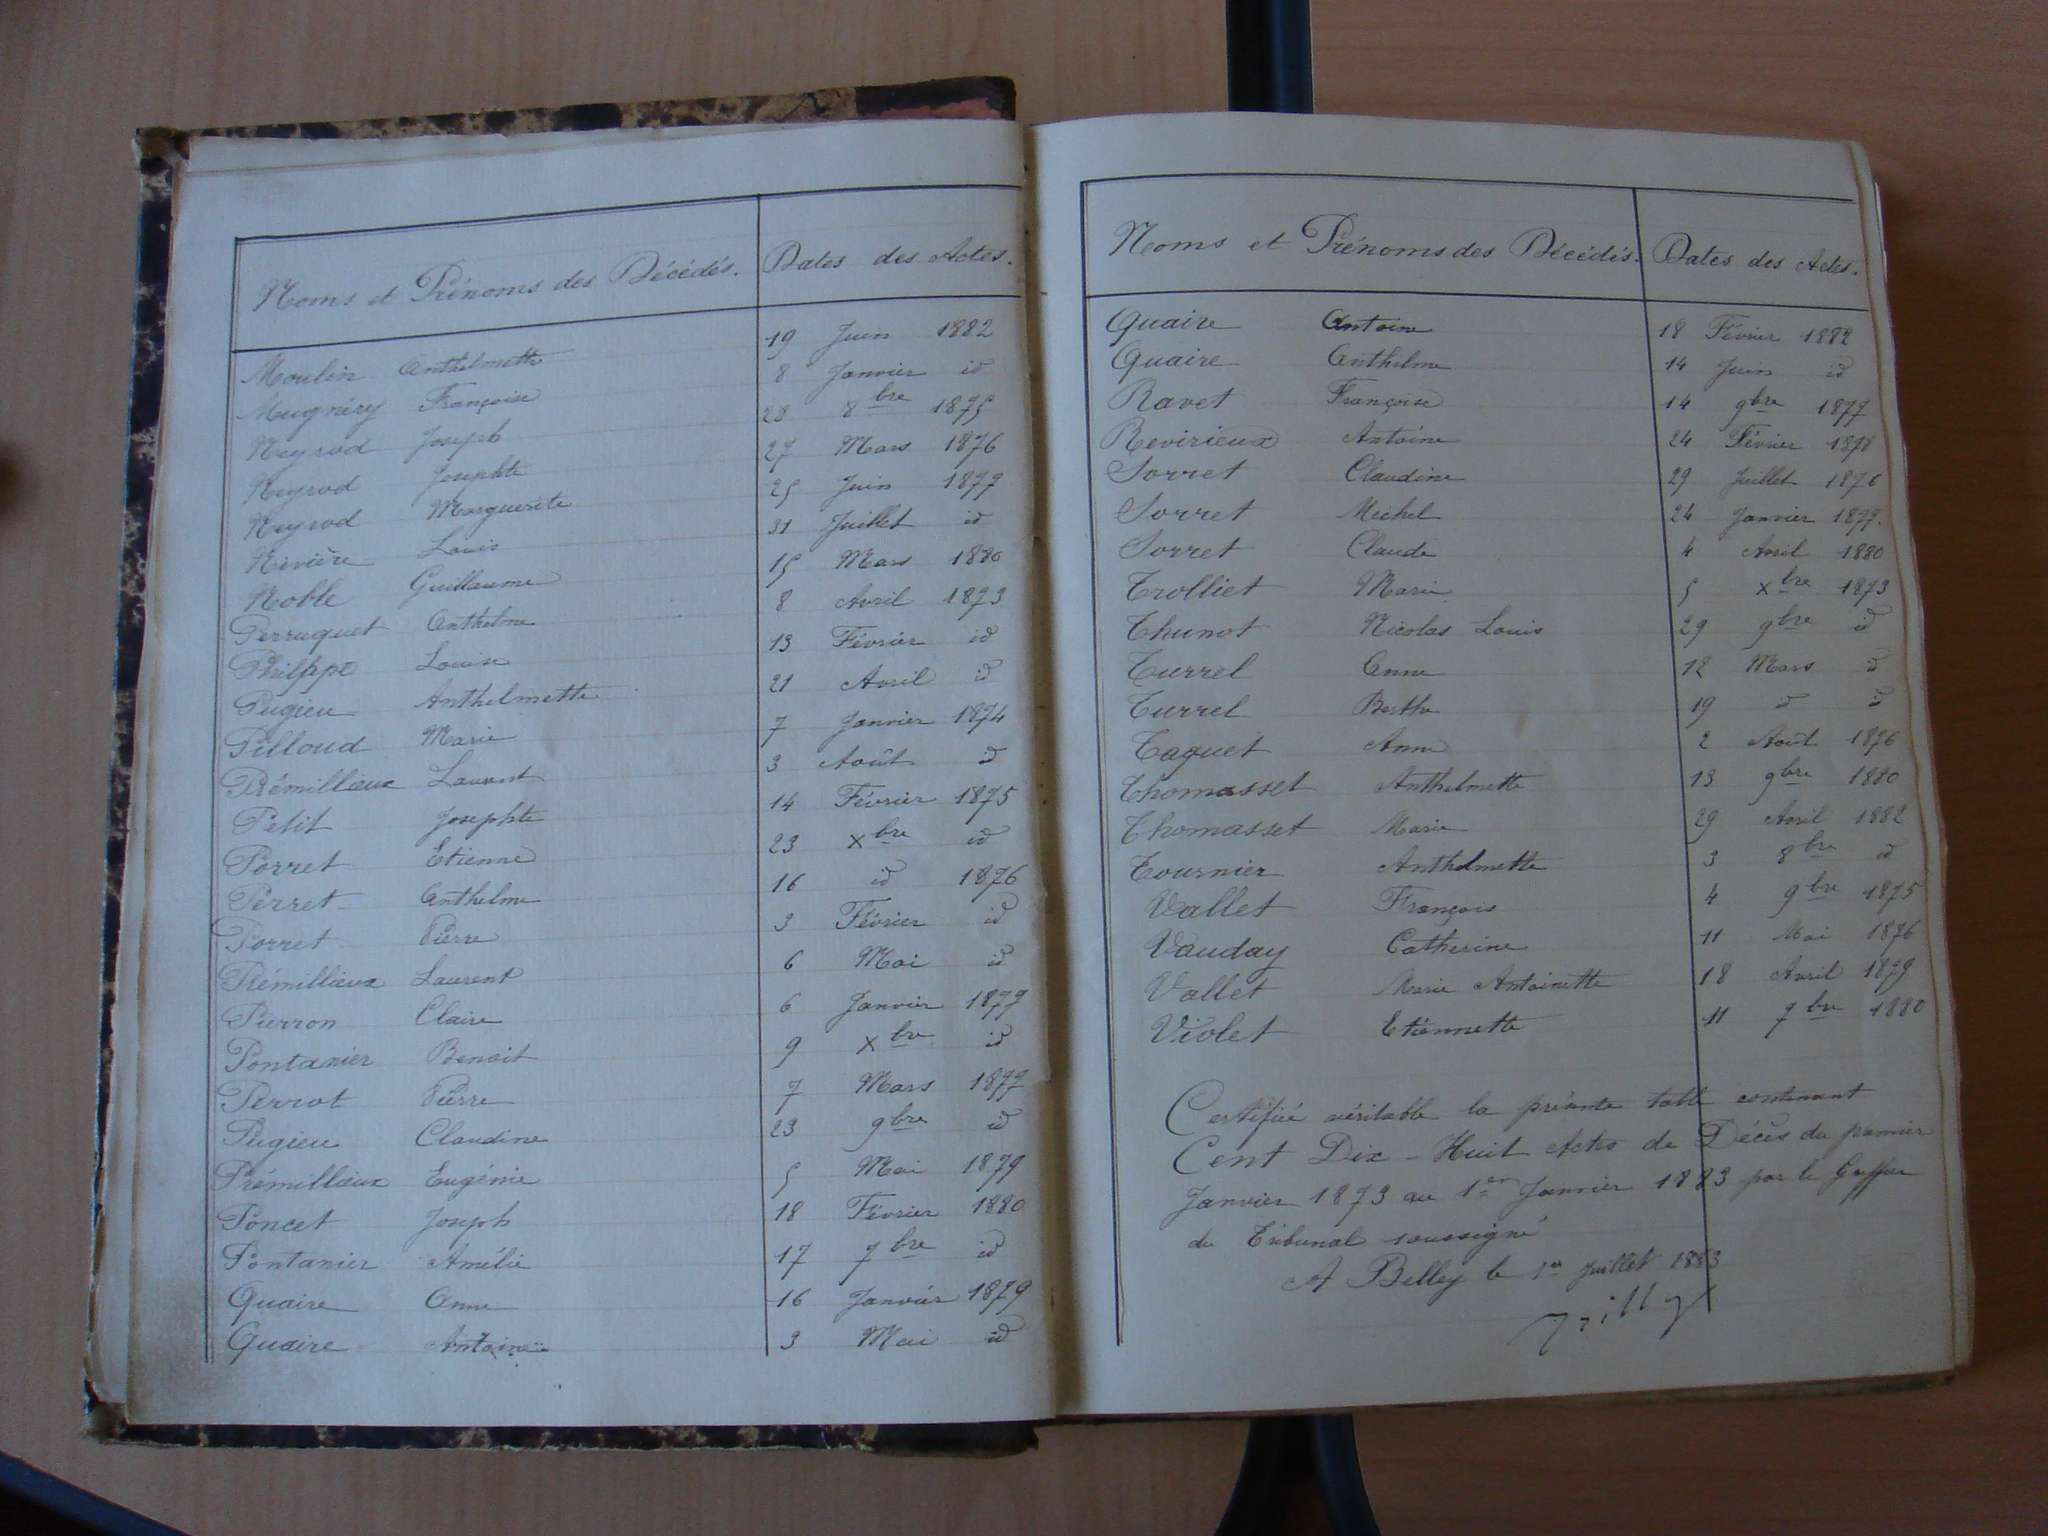 Noms et Prénoms des Décédés. Dates des Actes.
Moulin Anthelmette 19 Juin 1882
Mugnéry Françoise 8 Janvier id
Neyrod Joseph 28 8bre 1875
Neyrod Josephte 27 Mars 1876
Neyrod Marguerite 25 Juin 1877
Nivière Louis 31 Juillet id
Noble Guillaume 15 Mars 1880
Perruquet Anthelme 8 Avril 1873
Philippe Louise 13 Février id
Pugieu Anthelmette 21 Avril id
Pilloud Marie 7 Janvier 1874
Prémillieux Laurent 3 Août id
Petit Josephte 14 Février 1875
Porret Etienne 23 xbre id
Perret Anthelme 16 id 1876
Porret Pierre 3 Février id
Prémillieux Laurent 6 Mai id
Pierron Claire 6 Janvier 1877
Pontanier Benoit 9 xbre id
Perrot Pierre 7 Mars 1877
Pugieu Claudine 23 9bre id
Prémillieux Eugénie 5 Mai 1879
Poncet Joseph 18 Février 1880
Pontanier Amélie 17 7bre id
Quaire Anne 16 Janvier 1879
Quaire Antoine 3 Mai id
Noms et Prénoms des Décédés. Dates des Actes.
Quaire Antoine 18 Février 1882
Quaire Anthelme 14 Juin id
Ravet Françoise 14 9bre 1877
Revirieux Antoine 24 Février 1878
Sorret Claudine 29 Juillet 1876
Sorret Michel 24 Janvier 1877.
Sorret Claude 4 Avril 1880
Trolliet Marie 5 xbre 1873
Thunot Nicolas Louis 29 9bre id
Turrel Anne 12 Mars id
Turrel Berthe 19 id id
Taquet Anne 2 Août 1876
Thomasset Anthelmette 13 9bre 1880
Thomasset Marie 29 Avril 1882
Tournier Anthelmette 3 8bre id
Vallet François 4 9bre 1875
Vauday Catherine 11 Mai 1876
Vallet Marie Antoinette 18 Avril 1879
Violet Etiennette 11 7bre 1880
Certifiée véritable la présente table contenant
Cent Dix-Huit Actes de Décès du premier
Janvier 1873 au 1er Janvier 1883 par le Greffier
du Tribunal soussigné
A Belley le 1er Juillet 1883